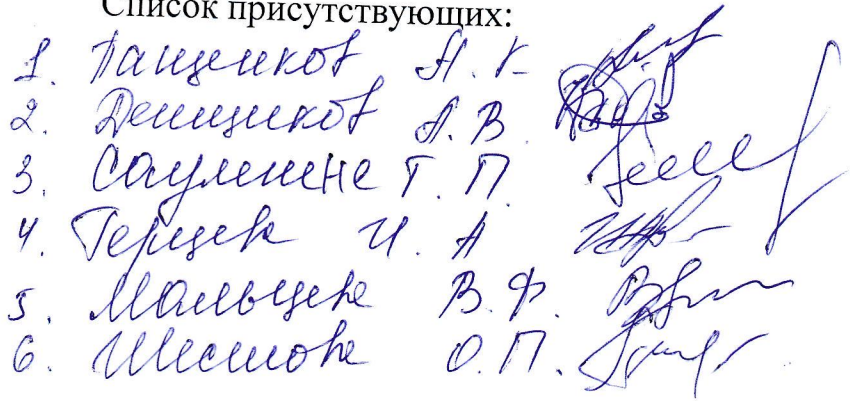 Список присутствующих:
1. Пащенков А. К
2. Денщиков А. В.
3. Саулишне Т. П.
4. Герцев И. А
5. Мальцева В. Ф.
6. Шестова О. П.